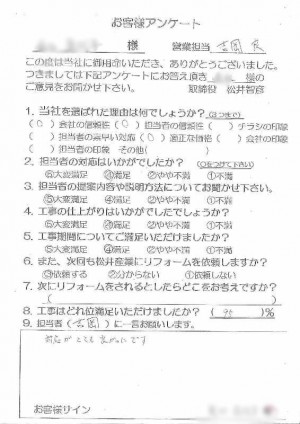 お客様アンケート
様 営業担当 吉岡
この度は当社に御用命いただき、ありがとうございました。
つきましては下記アンケートにお答え頂き 様の
ご意見をお聞かせ下さい。 取締役 松井智彦
1. 当社を選ばれた理由は何でしょうか？(3つまで)
(○)会社の信頼性 (○)担当者の信頼性 ( )チラシの印象
( )担当者の素早い対応 (○)適正な価格 ( )会社の印象
( )担当者の印象 その他( )
2. 担当者の対応はいかがでしたか？ (○をつけて下さい)
⑤大変満足 ④満足 ②やや不満 ①不満
3. 担当者の提案内容や説明方法についてお聞かせ下さい。
⑤大変満足 ④満足 ②やや不満 ①不満
4. 工事の仕上がりはいかがでしたでしょうか？
⑤大変満足 ④満足 ②やや不満 ①不満
5. 工事期間についてご満足いただけましたか？
⑤大変満足 ④満足 ②やや不満 ①不満
6. また、次回も松井産業にリフォームを依頼しますか？
③依頼する ②分からない ①依頼しない
7. 次にリフォームをされるとしたらどこをお考えですか？
( )
8. 工事はどれ位満足いただけましたか？ ( 95 )%
9. 担当者(吉岡)に一言お願いします。
対応がとても良かったです
お客様サイン